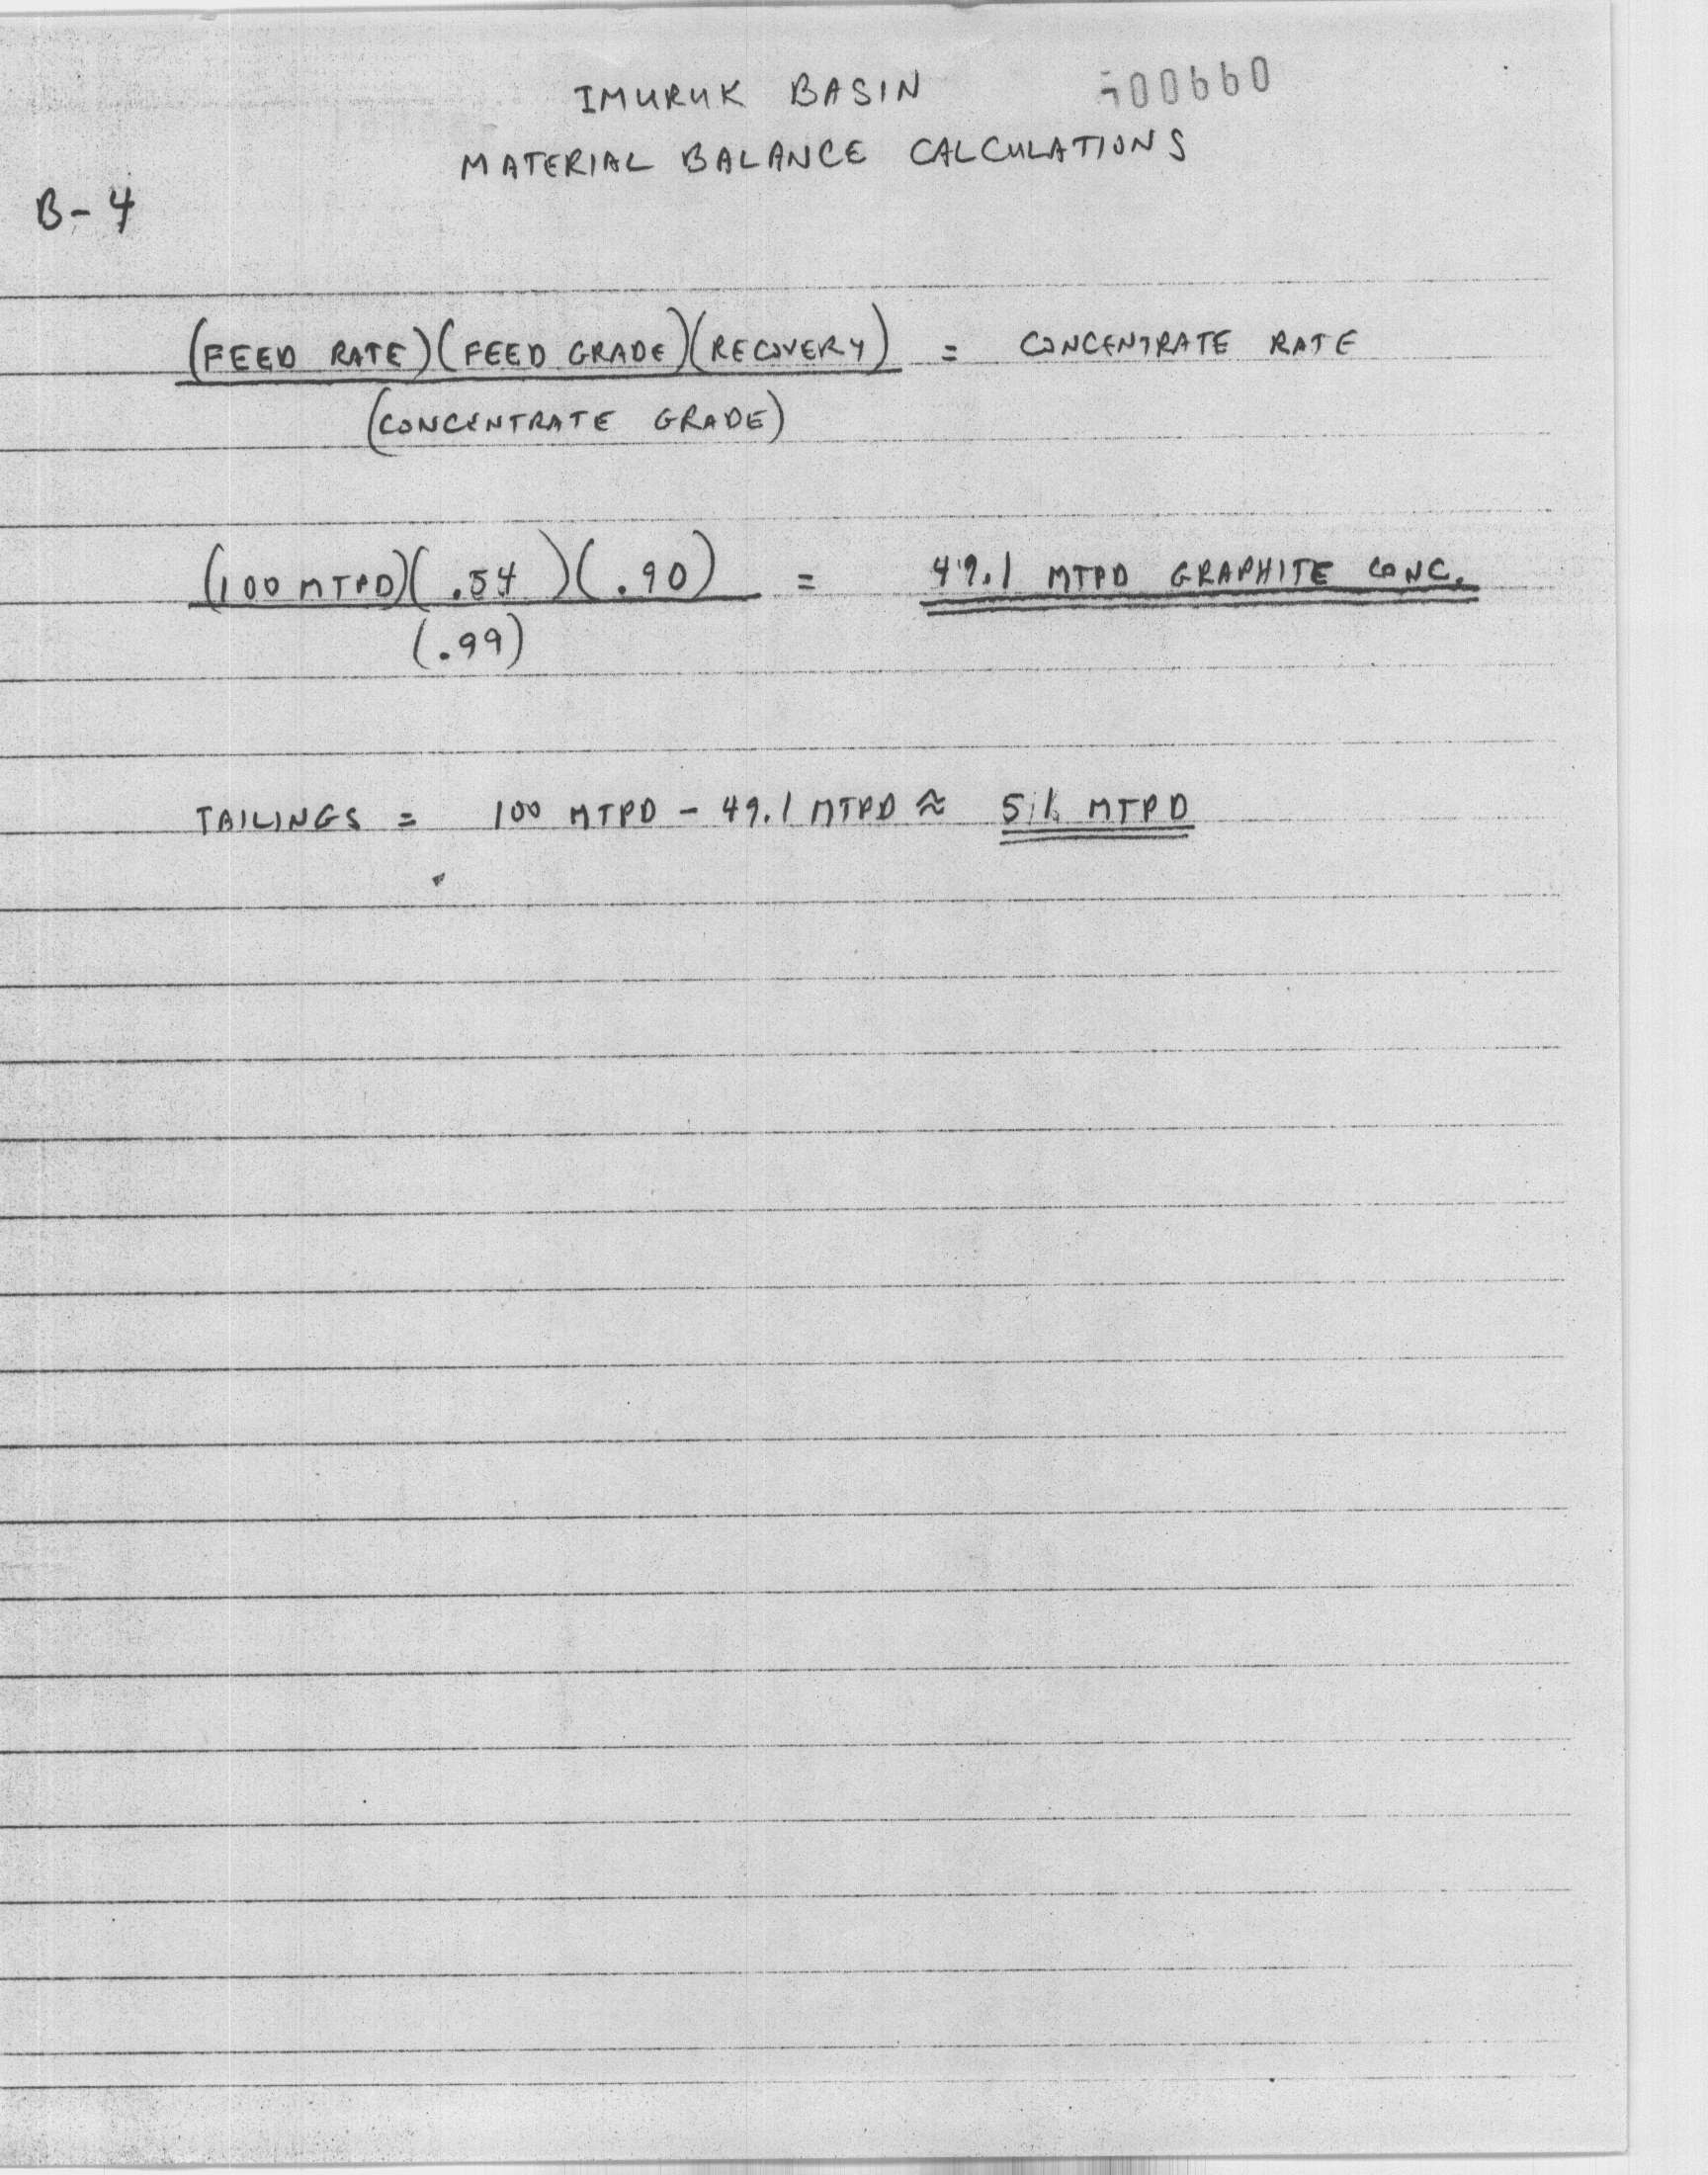 IMURUK BASIN
500660
MATERIAL BALANCE CALCULATIONS
B-4
(FEED RATE)(FEED GRADE)(RECOVERY) = CONCENTRATE RATE
(CONCENTRATE GRADE)
(100 MTPD)(.54)(.90) = 49.1 MTPD GRAPHITE CONC.
(.99)
TAILINGS = 100 MTPD - 49.1 MTPD ≈ MTPD